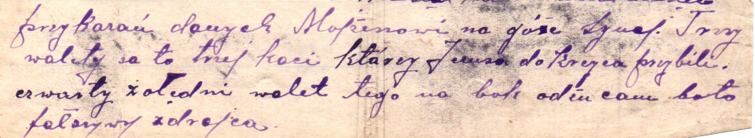 przykazań danych Mojżeszowi na górze Synaj. Trzy
walety są to trzej kaci którzy Jezusa do krzyża przybili.
czwarty żołędni walet tego na bok odrzucam bo to
fałszywy zdrajca.